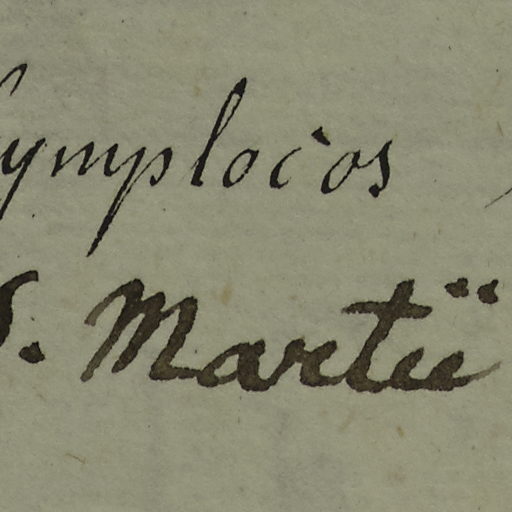 Symplocos
S. Martii